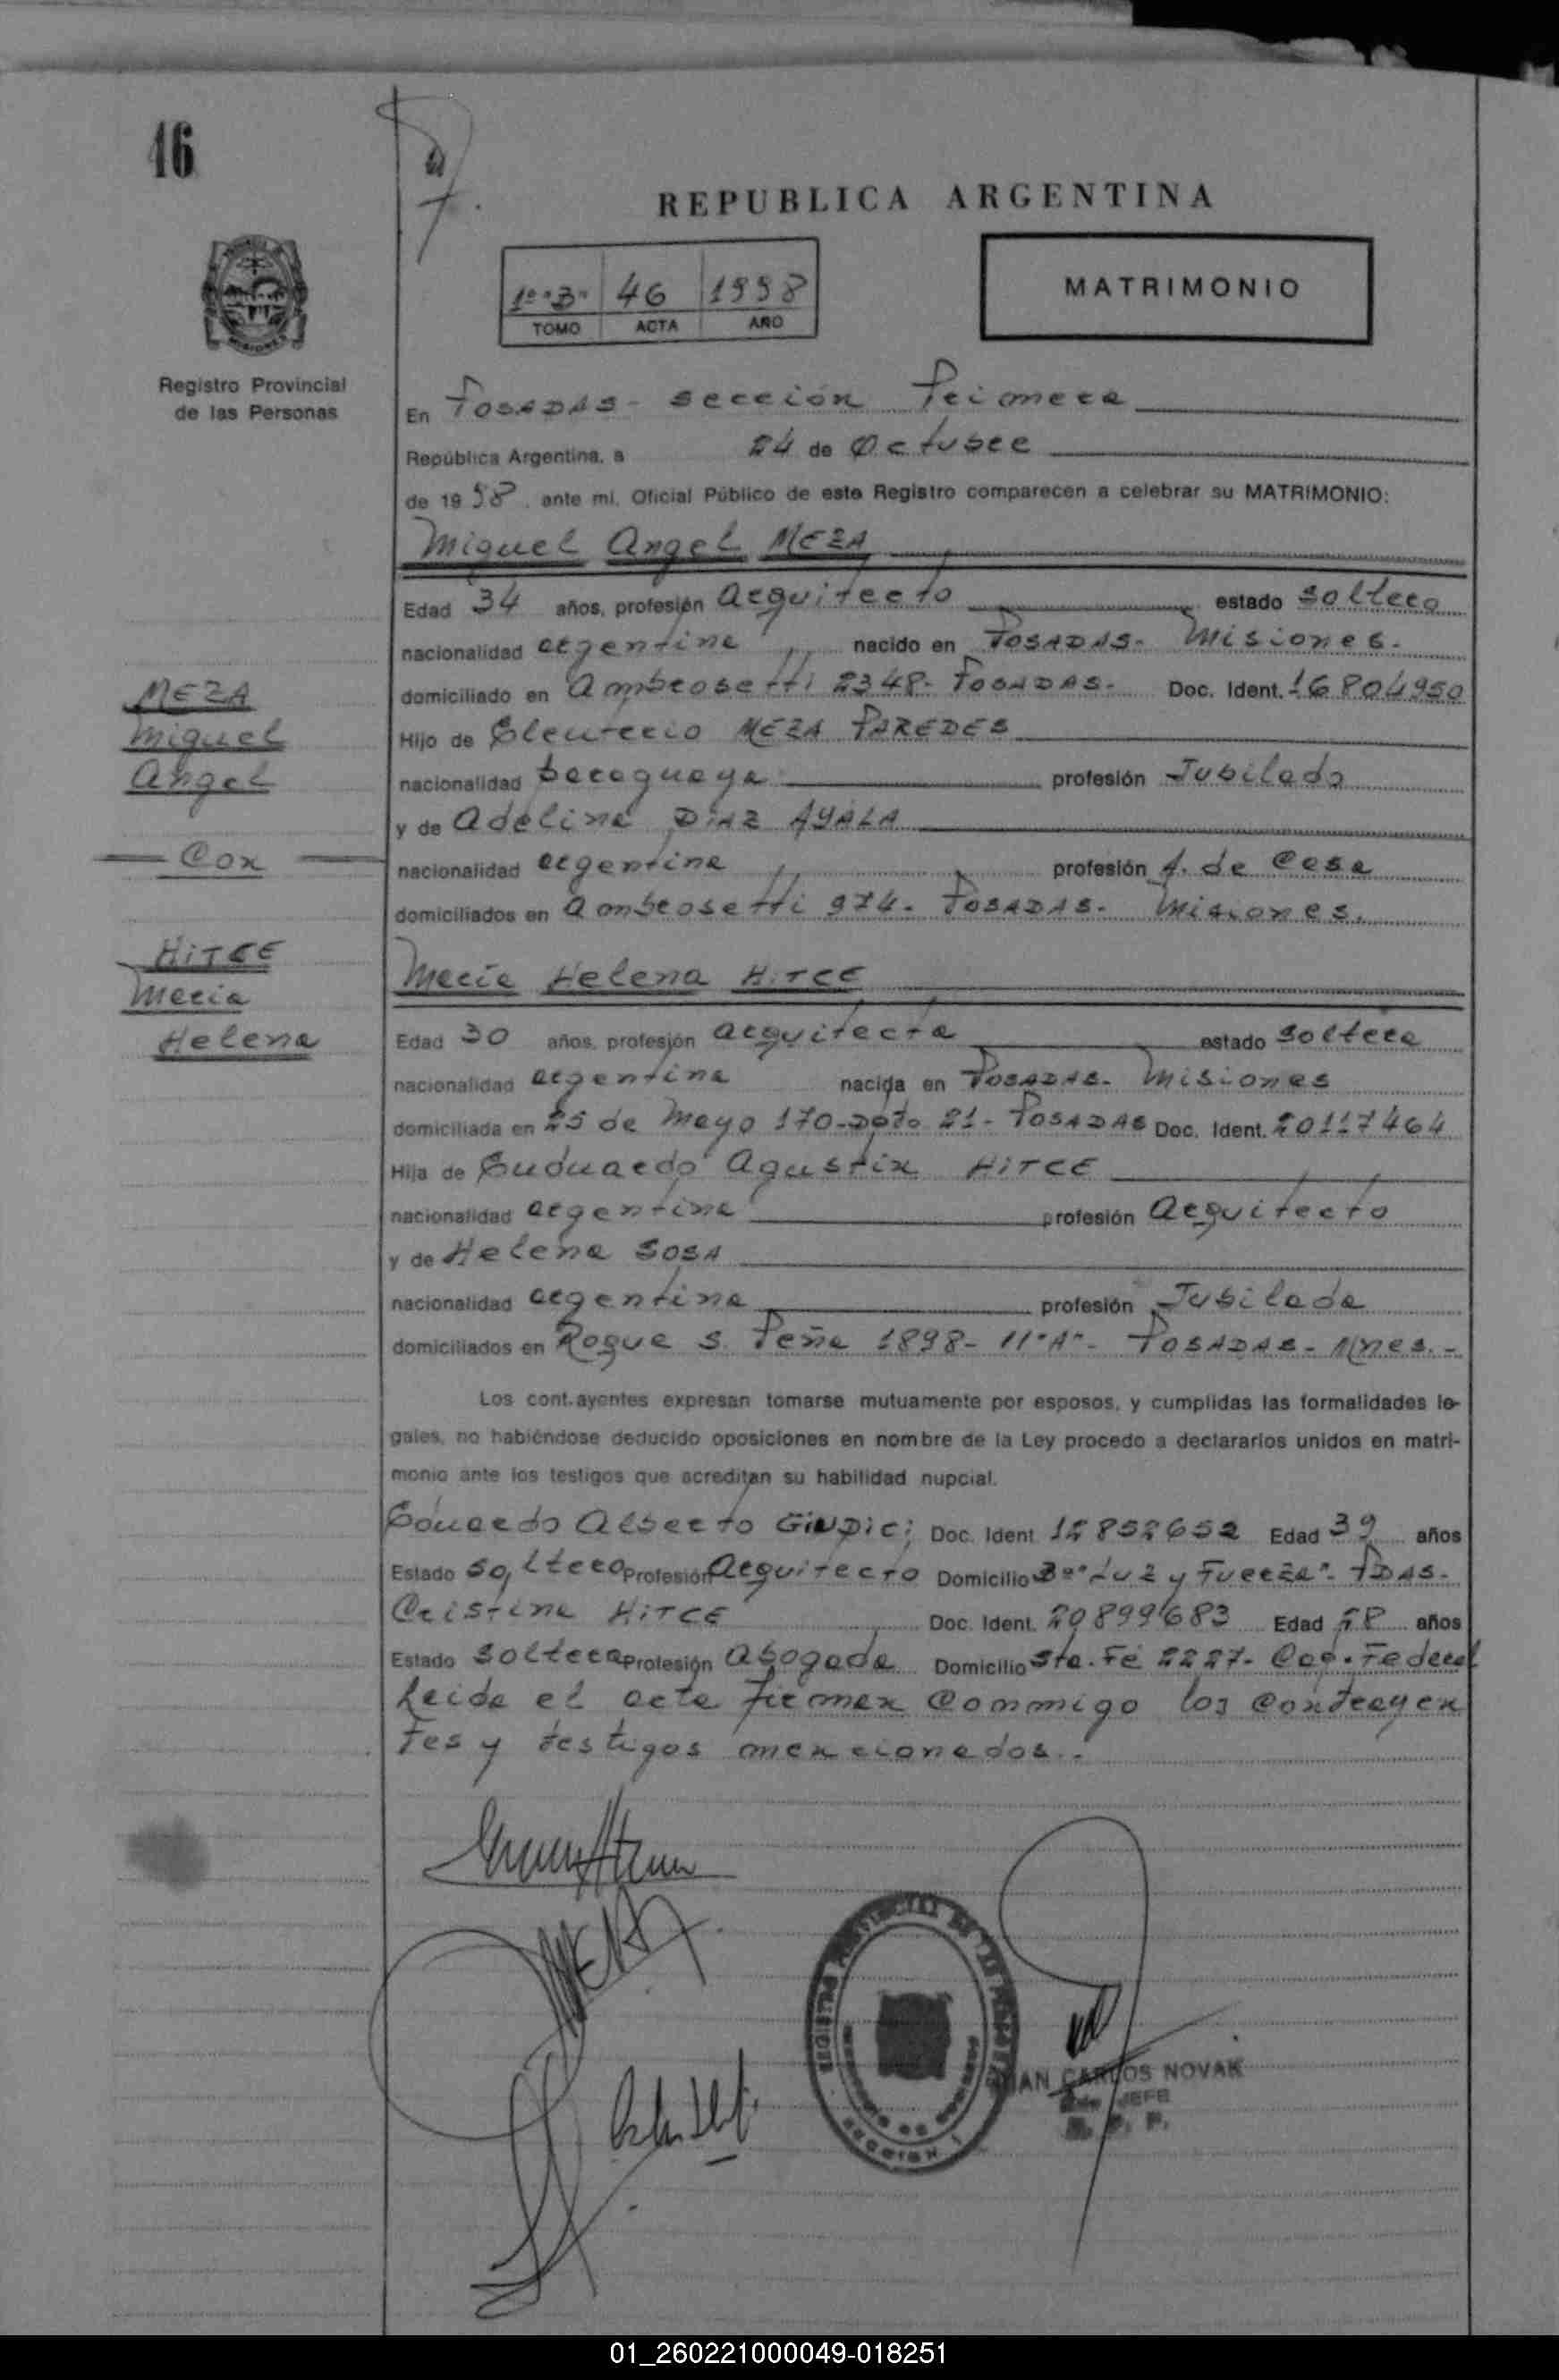 46
REPUBLICA ARGENTINA
1º "B" 46 1998
TOMO ACTA AÑO
MATRIMONIO
MISIONES
Registro Provincial
de las Personas
En POSADAS - Sección Primera
República Argentina, a 24 de Octubre
de 1998, ante mi, Oficial Público de este Registro comparecen a celebrar su MATRIMONIO:
Miguel Angel MEZA
Edad 34 años, profesión Arquitecto estado Soltero
nacionalidad argentina nacido en POSADAS - Misiones.
MEZA
Miguel
Angel
Con
HITCE
Maria
Helena
domiciliado en Ambrosetti 2348 - POSADAS - Doc. Ident. 16804950
Hijo de Eleuterio MEZA PAREDES
nacionalidad paraguaya profesión Jubilado
y de Adelina DIAZ AYALA
nacionalidad argentina profesión A. de Casa
domiciliados en Ambrosetti 974 - POSADAS - Misiones.
María Helena HITCE
Edad 30 años, profesión Arquitecta estado Soltera
nacionalidad argentina nacida en POSADAS - Misiones
domiciliada en 25 de Mayo 170 - Dpto 21 - POSADAS Doc. Ident. 20117464
Hija de Euduardo Agustin HITCE
nacionalidad argentina profesión Arquitecto
y de Helena SOSA
nacionalidad argentina profesión Jubilada
domiciliados en Roque S. Peña 1898 - 11 "A" - POSADAS - Mnes. -
Los contrayentes expresan tomarse mutuamente por esposos, y cumplidas las formalidades le-
gales, no habiéndose deducido oposiciones en nombre de la Ley procedo a declararlos unidos en matri-
monio ante los testigos que acreditan su habilidad nupcial.
Eduardo Alberto GIUDICI Doc. Ident. 12852652 Edad 39 años
Estado Soltero Profesión Arquitecto Domicilio Bº "Luz y Fuerza" - PDAS -
Cristina HITCE Doc. Ident. 20899683 Edad 28 años
Estado Soltera Profesión Abogada Domicilio Sta. Fé 2227 - Cap. Federal
Leida el acta firman conmigo los contrayen
tes y testigos mencionados. -
MEZA
REGISTRO PROVINCIAL DE LAS PERSONAS
SECCION 1
JUAN CARLOS NOVAK
JEFE
R. P. P.
01_260221000049-018251